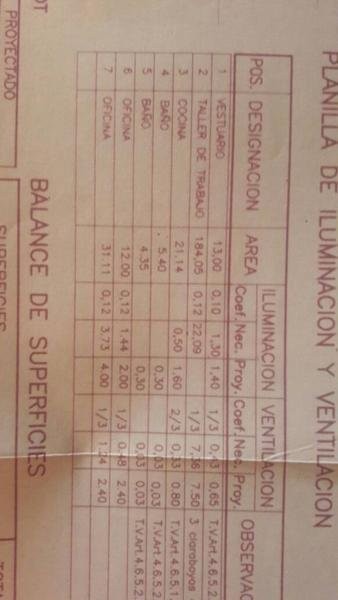 PLANILLA DE ILUMINACION Y VENTILACION
ILUMINACION VENTILACION
POS. DESIGNACION AREA Coef. Nec. Proy. Coef. Nec. Proy. OBSERVAC
1 VESTUARIO 13,00 0,10 1,30 1,40 1/3 0,65 T.V.Art.4.6.5.2.
2 TALLER DE TRABAJO 184,05 0,12 22,09 1/3 7,36 7.50 3 claraboyas
3 COCINA 21,14 0,50 1.60 2/3 0,33 0.80 T.V.Art.4.6.5.1.
4 BAÑO 5.40 0,30 0,03 0,03 T.V.Art.4.6.5.2
5 BAÑO 4.35 0,30 0,03 0,03 T.V.Art.4.6.5.2
6 OFICINA 12.00 0,12 1.44 2.00 1/3 0,48 2.40
7 OFICINA 31.11 0,12 3.73 4.00 1/3 1.24 2.40
BALANCE DE SUPERFICIES
OT
PROYECTADO
SUPERFICIES